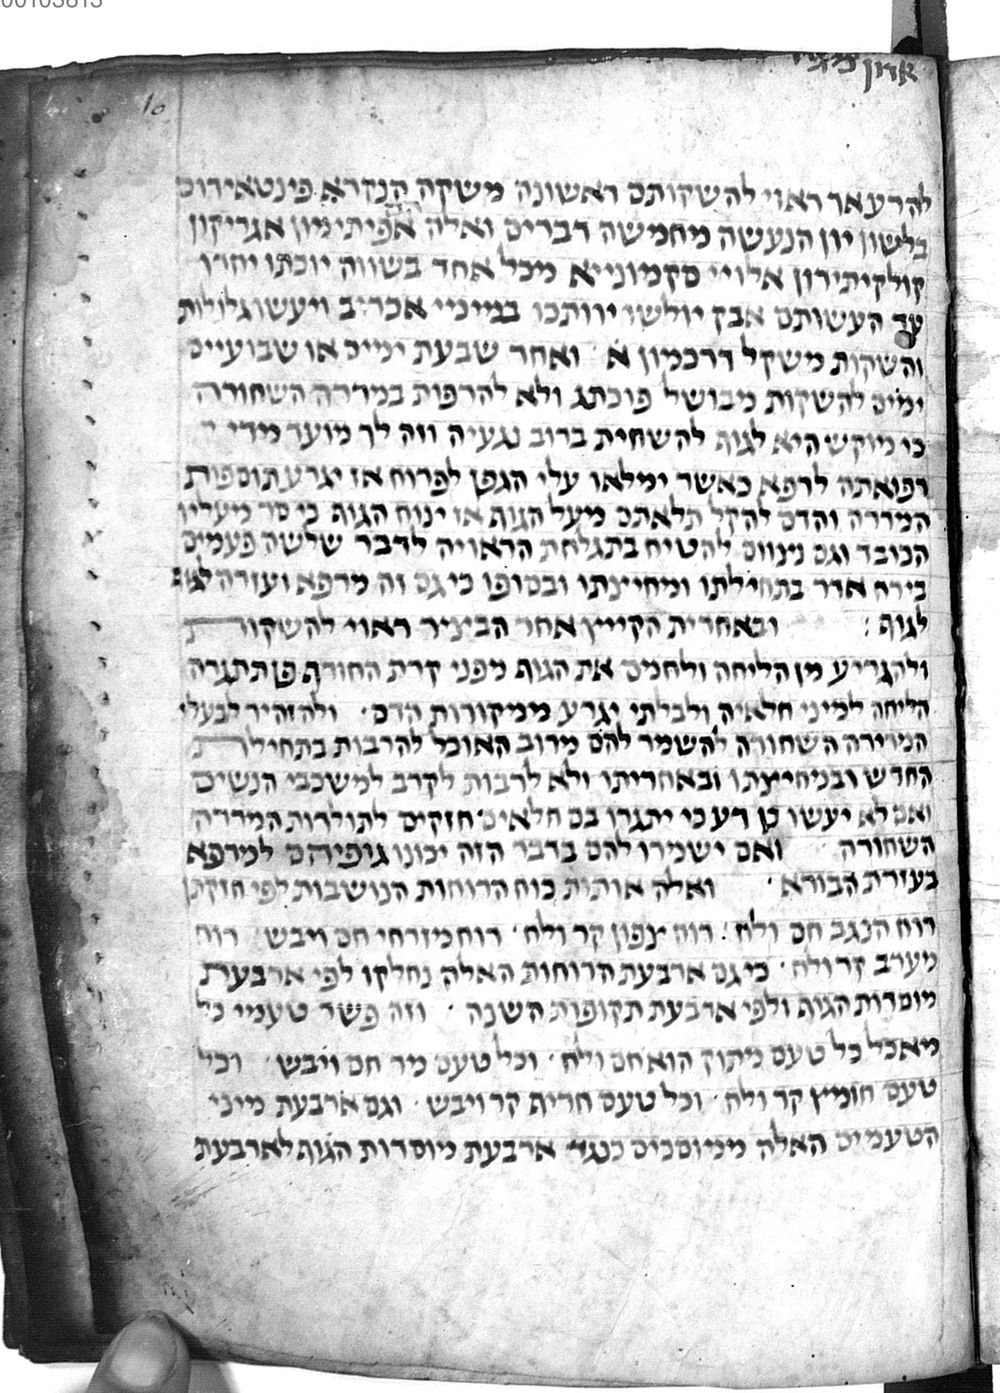 00103813
10
אדון
להרעאר ראוי להשקותם ראשונה משקה הנקרא פינטאירוס
בלשון יון הנעשה מחמשה דברים ואלה אפיתימון אגריקון
קולקיתירון אלויי סקמונייא מכל אחד בשווה יוכתו יחדו
עד העשותם אבק יולשו יוותכו במימיי אכריב ויעשו גלולות
והשקות משקל דרכמון א ואחר שבעת ימים או שבועיים
ימים להשקות מבושל פוכתג ולא להרפות במררה השחורה
כי מוקש היא לגוף להשחית ברוב נגעיה וזה לך מועד מדי
רפואתה לרפא כאשר ימלאו עלי הגפן לפרוח אז יגרע תוספות
המררה והדם להקל תלאתם מעל הגוף אז ינוח הגוף כי סר מעליו
הכובד וגם מצווים להטיח בתגלחת הראויה לדבר שלשה פעמים
בירח אדר בתחילתו ומחייצתו ובסופו כי גם זה מרפא ועזרה
לגוף : ובאחרית הקייץ אחר הבציר ראוי להשקות
ולהגריע מן הליחה ולחמם את הגוף מפני קרת החורף פן תתגרה
הליחה למיני חלאיה ולבלתי יגרע ממקורות הדם ולהזהיר לבעלי
המרירה השחורה להשמר להם מרוב האוכל להרבות בתחילת
החדש ובמחייצתו ובאחריתו ולא לרבות לקרב למשכבי הנשים
ואם לא יעשו כן דע כי יתגרו בם חלאים חזקים לתולדות המררה
השחורה ואם ישמרו להם בדבר הזה יכונו גופיהם למרפא
בעזרת הבורא ואלה אותות כוח הרוחות הנושבות לפי חזקתן
רוח הנגב חם ולח רוח צפון קר ולח רוח מזרחי חם ויבש רוח
מערב קר ולח כי גם ארבעת הרוחות האלה נחלקו לפי ארבעת
מוסדות הגוף ולפי ארבעת תקופות השנה וזה פשר טעמי כל
מאכל כל טעם מתוק הוא חם ולח וכל טעם מר חם ויבש וכל
טעם חומץ קר ולח וכל טעם חריף קר ויבש וגם ארבעת מיני
הטעמים האלה ממוסכים כנגד ארבעת מוסדות הגוף לארבעת